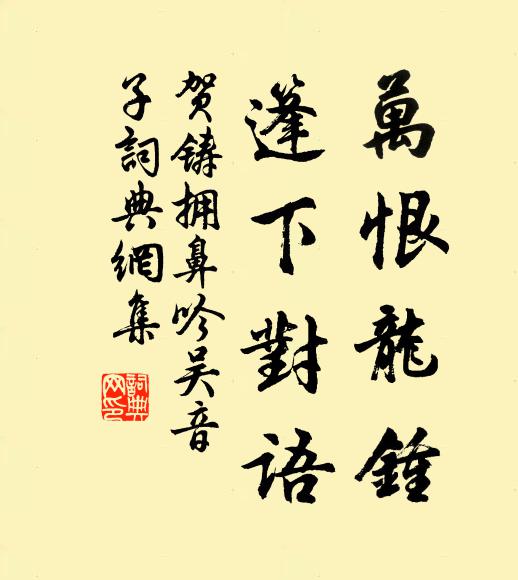 萬恨龍鍾
篷下對語
贺鑄拥鼻吟吴音
子詞典網集
詞典網印